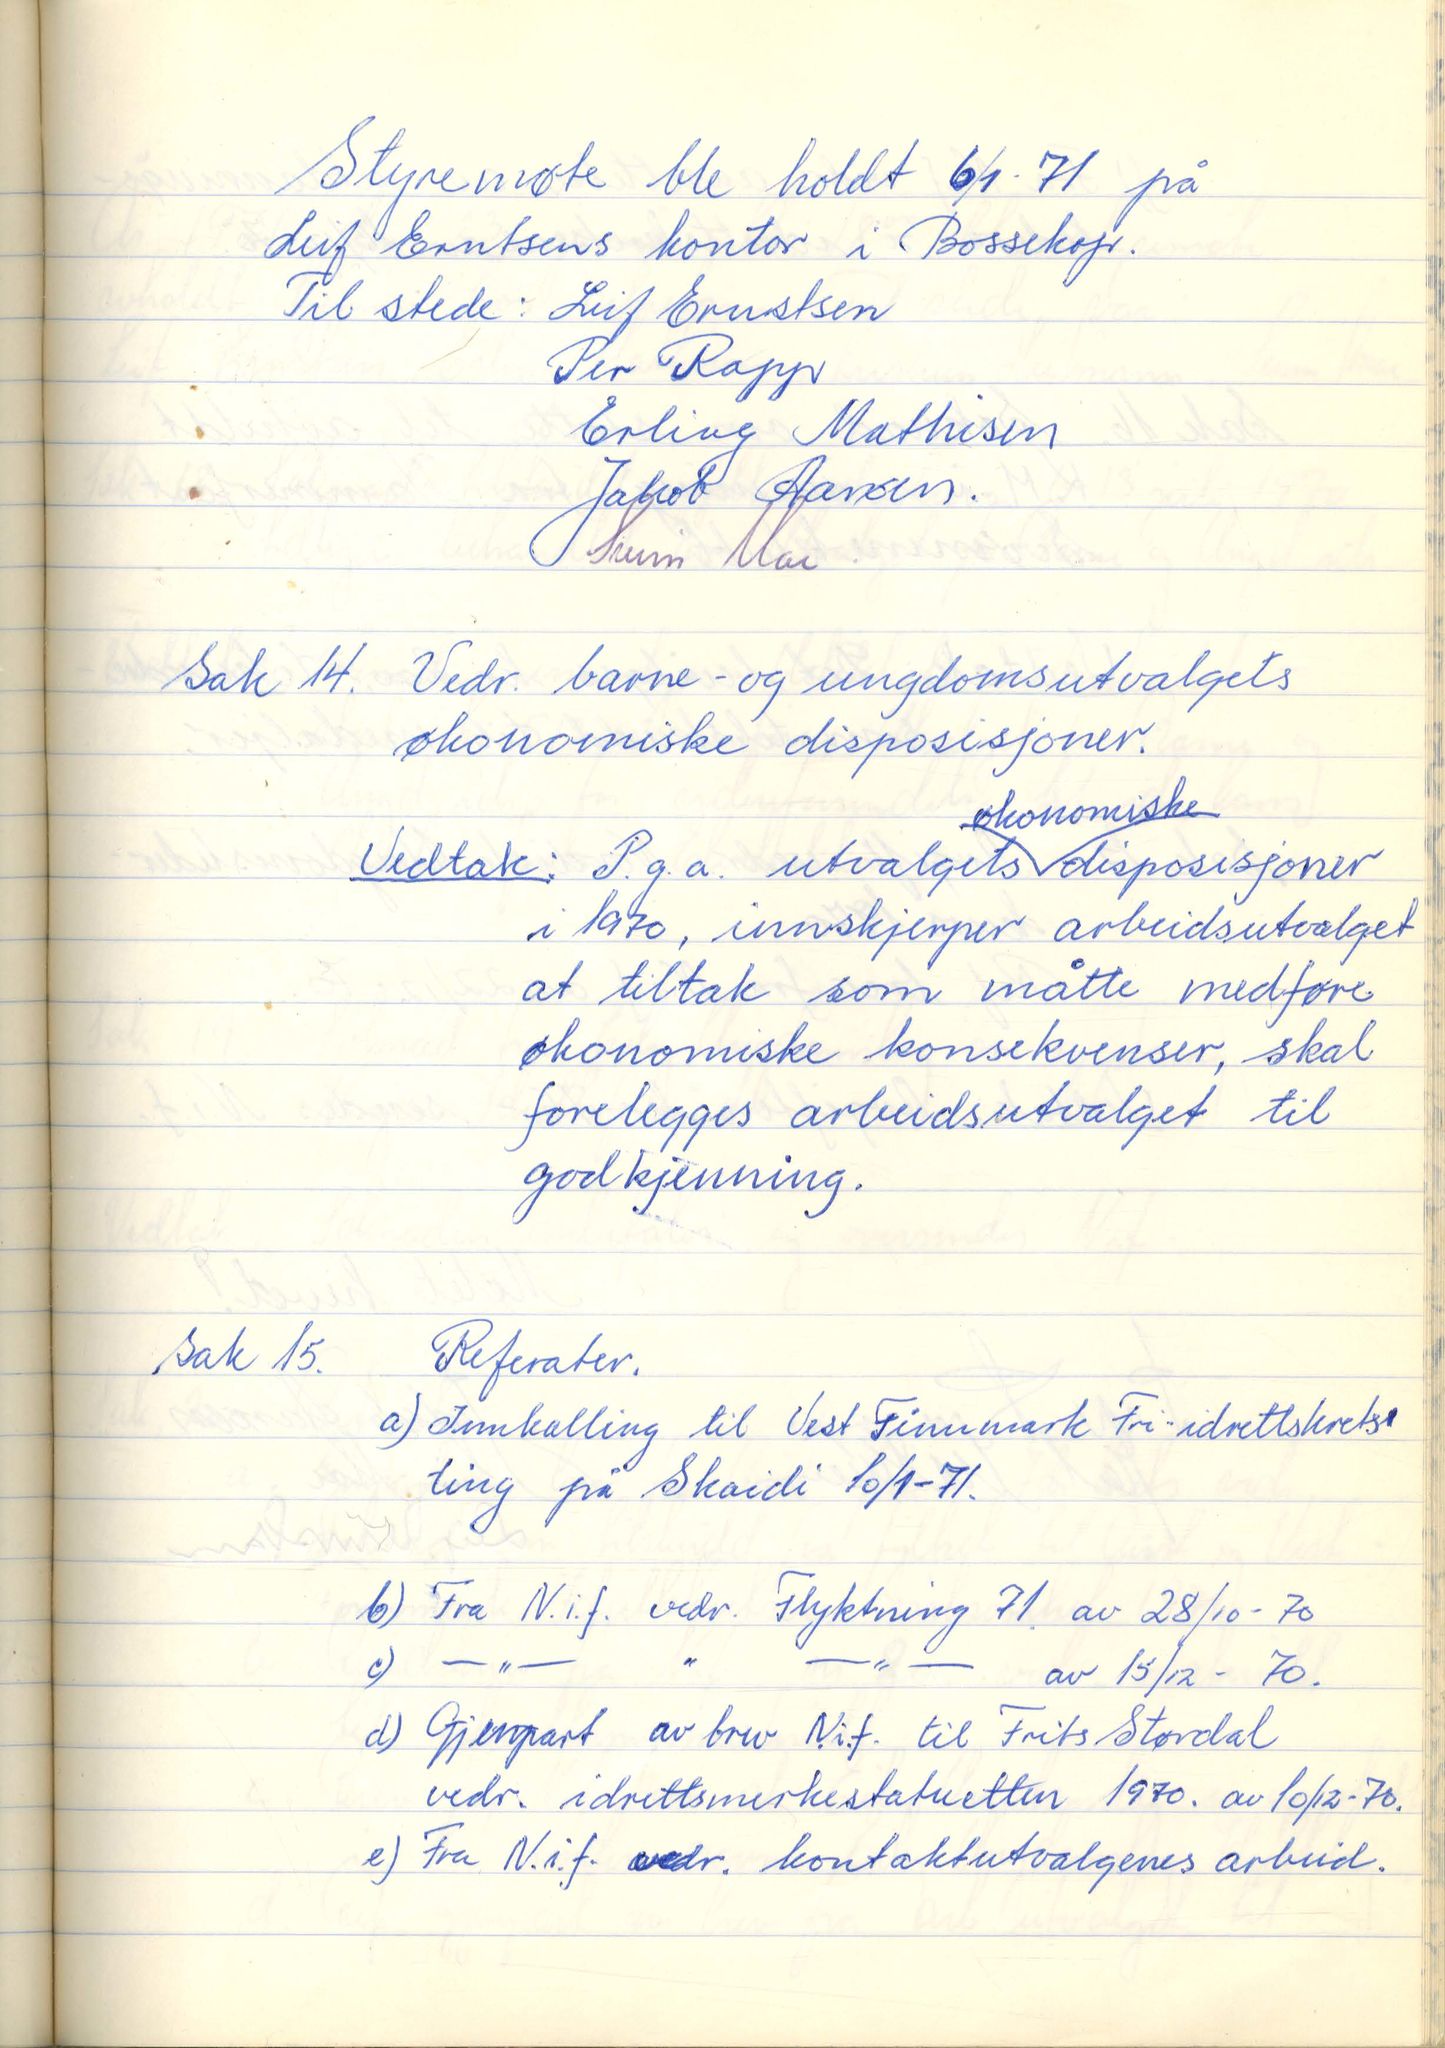 Styremøte ble holdt 6/1-71 på
Leif Erntsens kontor i Bossekop.
Til stede: Leif Ernstsen
Per Rapp
Erling Mathisen
Jakob
Sak 14. Vedr. barne- og ungdomsutvalgets
økonomiske disposisjoner.
økonomiske
Vedtak: P.g.a. utvalgets disposisjoner
i 1970, innskjerper arbeidsutvalget
at tiltak som måtte medføre
økonomiske konsekvenser, skal
forelegges arbeidsutvalget til
godkjenning.
Sak 15. Referater.
a) Innkalling til Vest Finnmark Fri-idrettskrets
ting på Skaidi 10/1-71.
b) Fra N.i.f. vedr. Flyktning 71. av 28/10-70
c) —"— " —"— av 15/12-70.
d) Gjenpart av brev N.i.f. til Frits Størdal
vedr. idrettsmerkestatuetten 1970. av 10/12-70.
e) Fra N.i.f. vedr. kontaktutvalgenes arbeid.